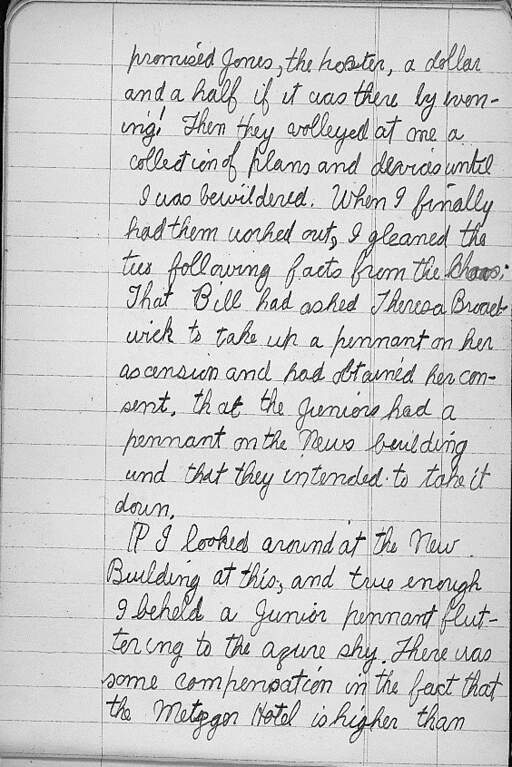 promised Jones, the hoster, a dollar
and a half if it was there by even-
ing! Then they volleyed at me a
collection of plans and devices until
I was bewildered. When I finally
had them worked out, I gleaned the
two following facts from the Chaos:
That Bill had asked Theresa Broad-
wick to take up a pennant on her
ascension and had obtained her con-
sent, that the Juniors had a
pennant on the News building
and that they intended to take it
down.
IP I looked around at the New
Building at this, and true enough
I beheld a Junior pennant flut-
tering to the azure sky. There was
some compensation in the fact that
the Metzger Hotel is higher than